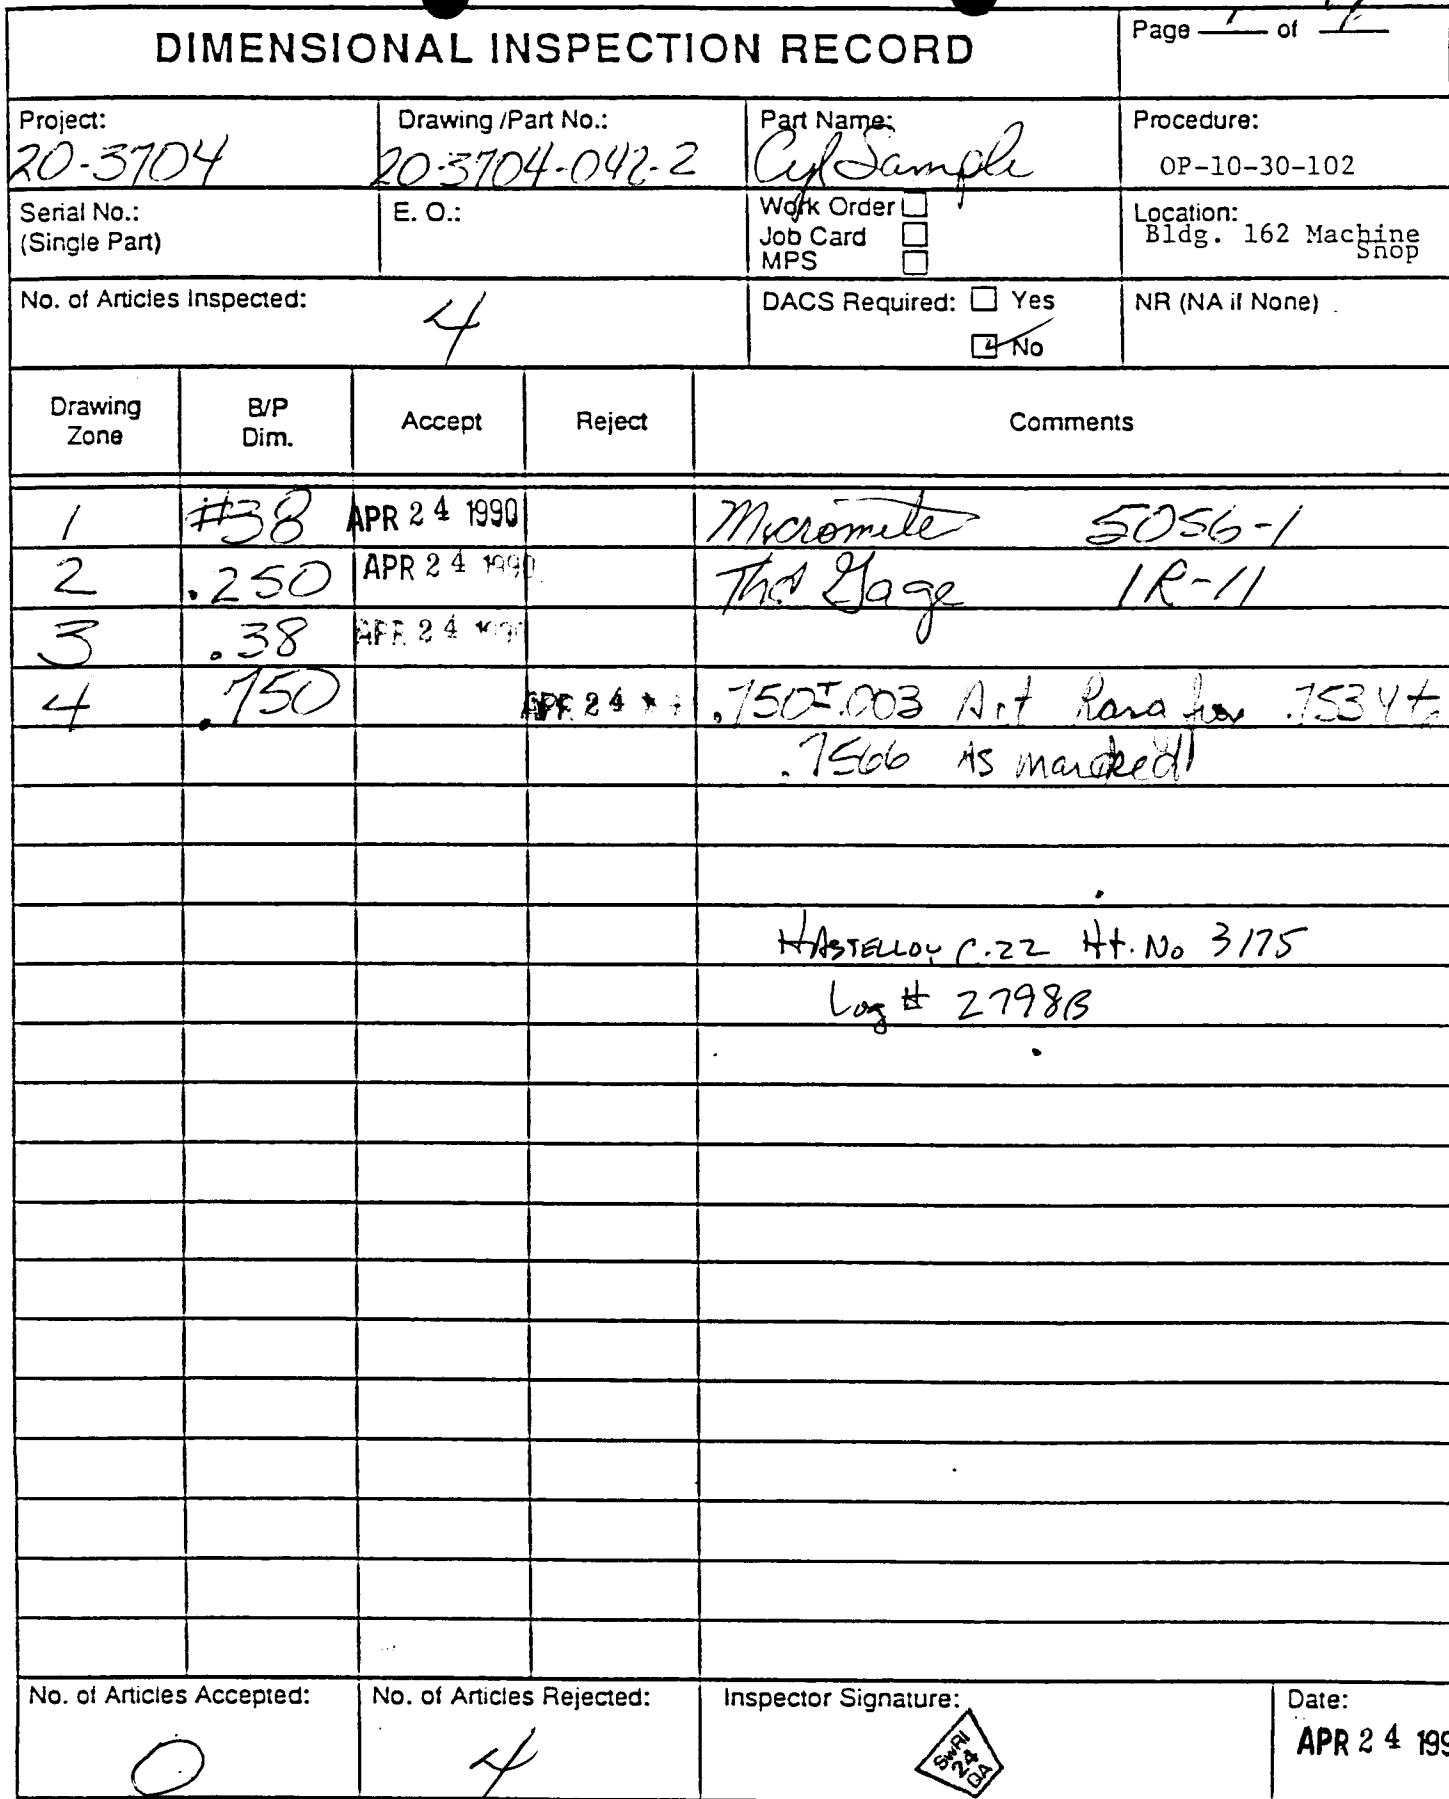 DIMENSIONAL INSPECTION RECORD
Page of
Project:
20-3704
Drawing /Part No.:
20-3704-042-2
Part Name:
Cyl Sample
Procedure:
OP-10-30-102
Serial No.:
(Single Part)
E. O.:
Work Order
Job Card
MPS
Location:
Bldg. 162 Machine
Shop
No. of Articles Inspected:
4
DACS Required: Yes
No
NR (NA if None)
Drawing
Zone
B/P
Dim.
Accept
Reject
Comments
1 #38 APR 24 1990 5056-1
2 .250 APR 24 1990 Gage IR-11
3 .38 APR 24 1990
4 .750 APR 24 .750±.003 .7534 to
.7566 AS marked
HASTELLOY C-22 Ht. No 3175
Log # 2798B
No. of Articles Accepted:
0
No. of Articles Rejected:
4
Inspector Signature:
SwRI
24
QA
Date:
APR 24 199